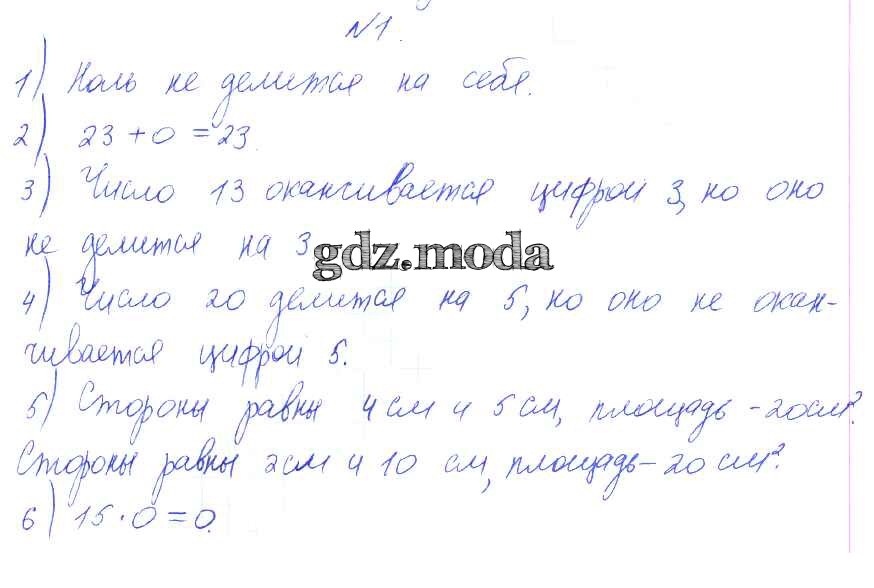 №1.
1) Ноль не делится на себя.
2) 23 + 0 = 23.
3) Число 13 оканчивается цифрой 3, но оно
не делится на 3
gdz.moda
4) Число 20 делится на 5, но оно не окан-
чивается цифрой 5.
5) Стороны равны 4 см и 5 см, площадь - 20 см².
Стороны равны 2 см и 10 см, площадь - 20 см².
6) 15 · 0 = 0.